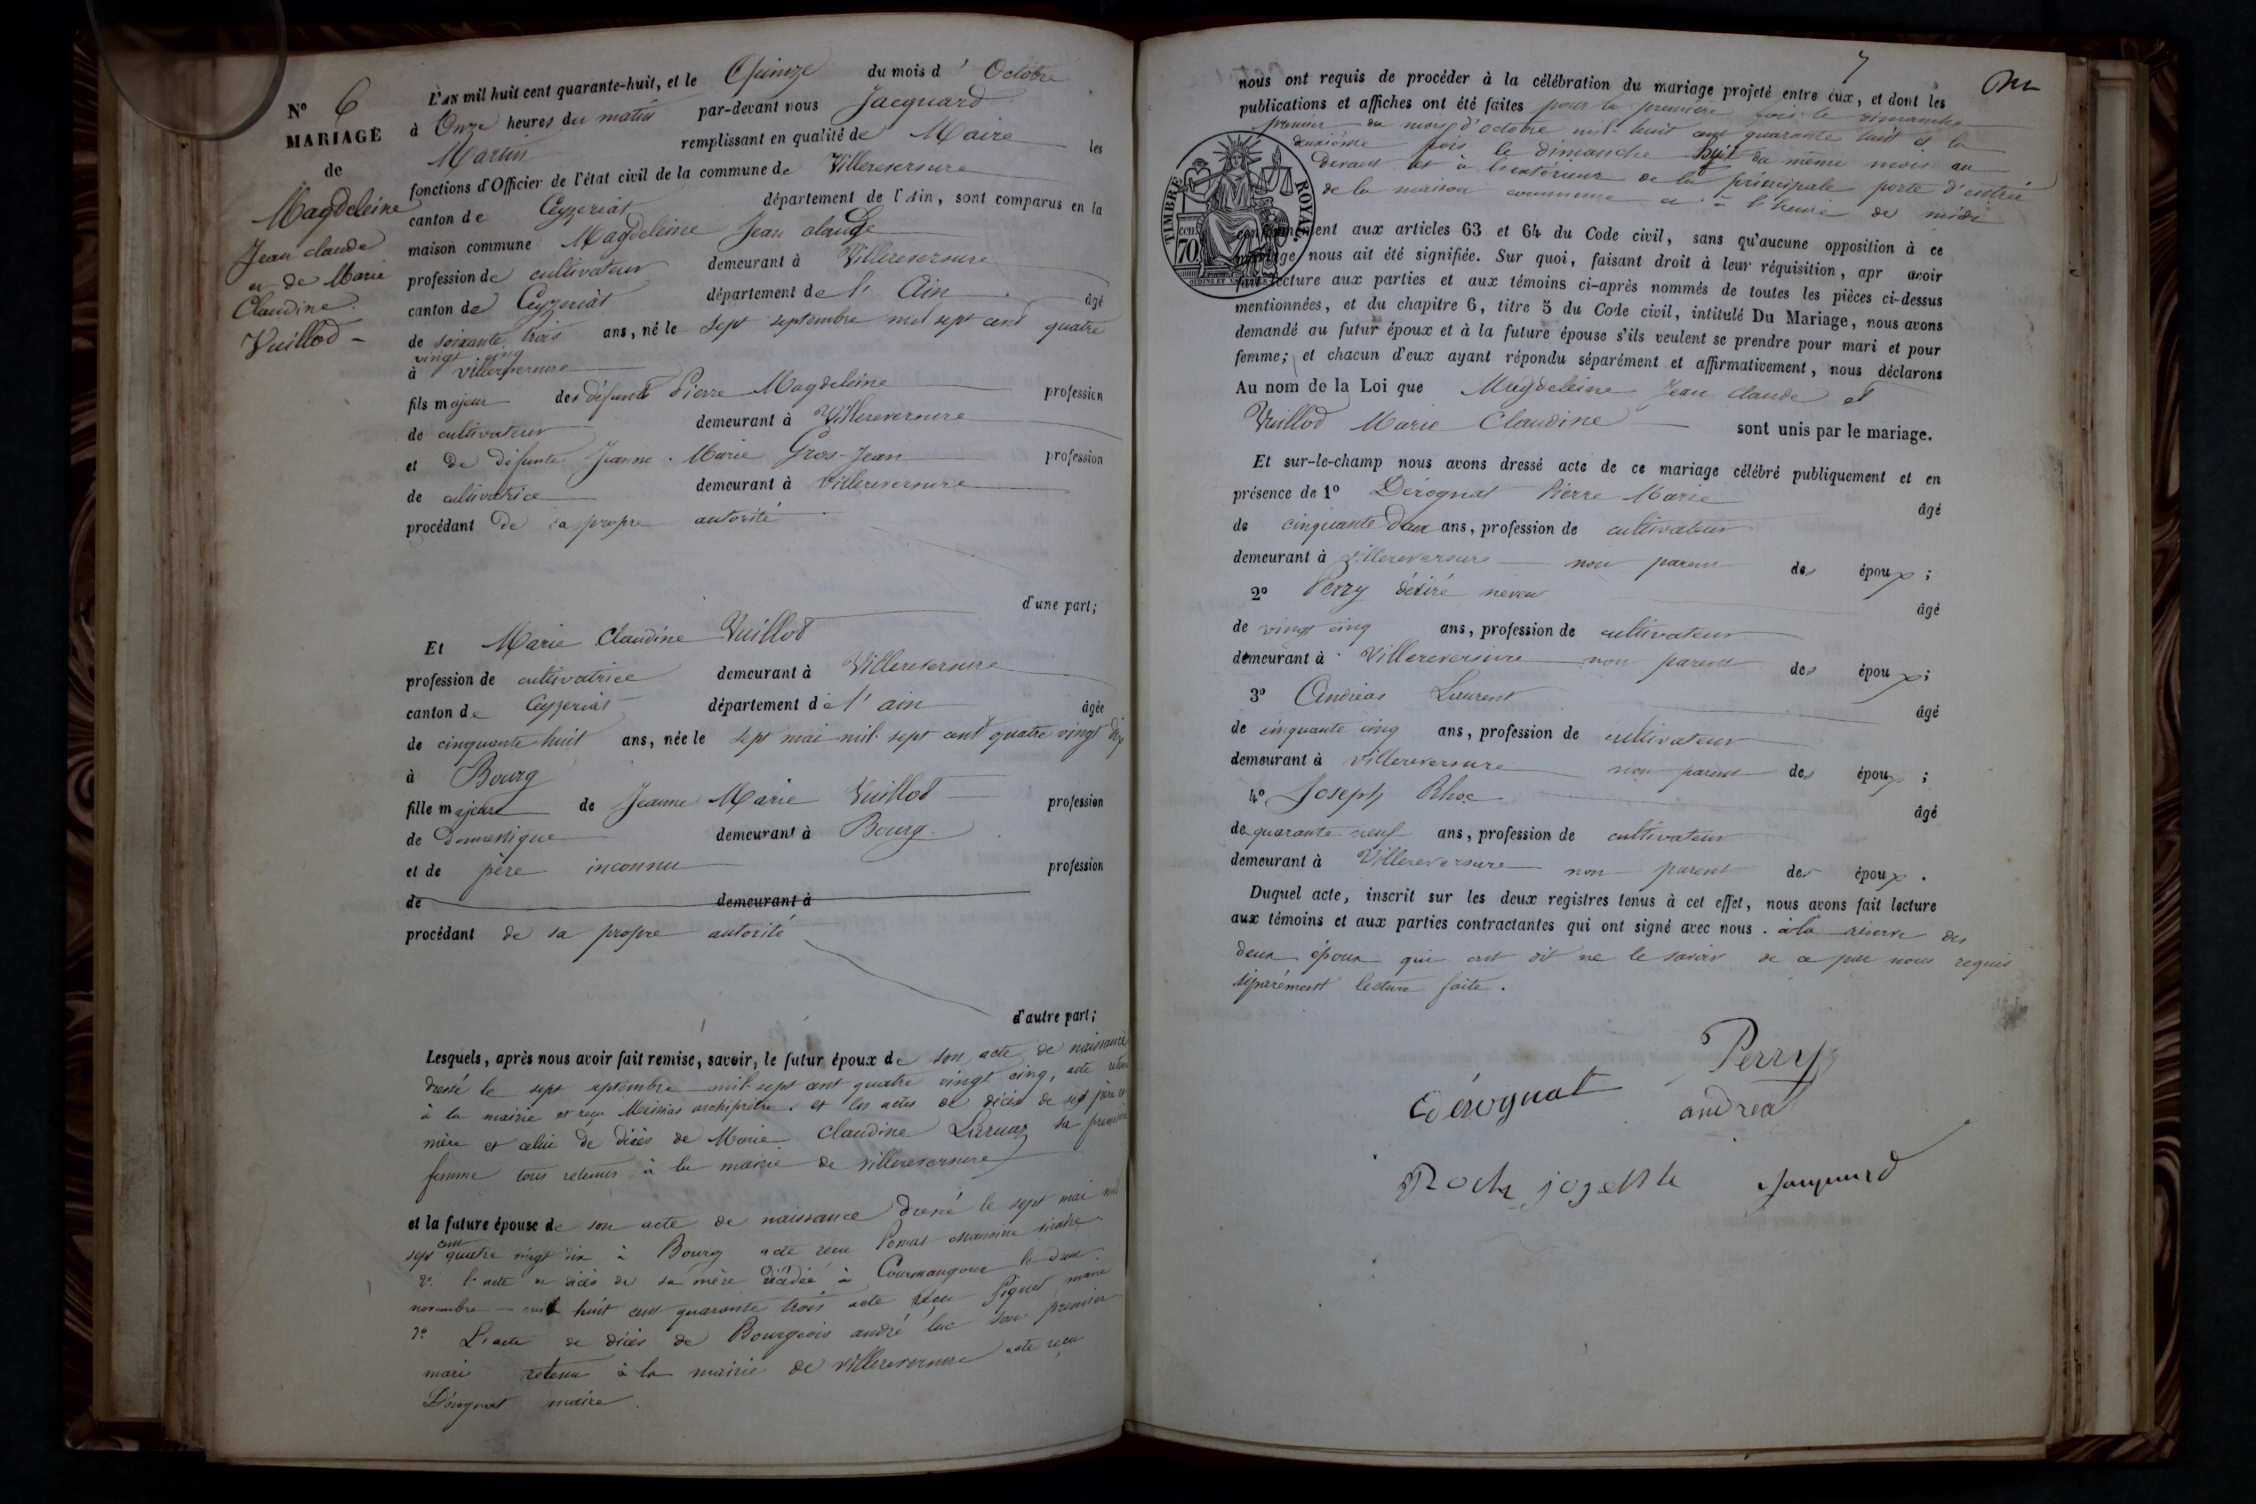 N° 6
MARIAGE
de
Magdeleine
Jean claude
et de Marie
Claudine
Vuillod -
L'AN mil huit cent quarante-huit, et le Quinze du mois d' Octobre
à Onze heures du matin par-devant nous Jacquard
Martin remplissant en qualité de Maire les
fonctions d'Officier de l'état civil de la commune de Villereversure
canton de Ceyzeriat département de l'Ain, sont comparus en la
maison commune Magdeleine Jean claude
profession de cultivateur demeurant à Villereversure
canton de Ceyzeriat département de l' Ain âgé
de soixante trois ans, né le sept septembre mil sept cent quatre
vingt cinq
à villereversure
fils majeur des défunts Pierre Magdeleine profession
de cultivateur demeurant à Villereversure
et de défunte Jeanne Marie Gros-Jean profession
de cultivatrice demeurant à Villereversure
procédant de sa propre autorité
d'une part;
Et Marie Claudine Vuillod
profession de cultivatrice demeurant à Villereversure
canton de Ceyzeriat département de l' ain âgée
de cinquante huit ans, née le sept mai mil sept cent quatre vingt dix
à Bourg
fille majeure de Jeanne Marie Vuillod profession
de Domestique demeurant à Bourg
et de père inconnu profession
de demeurant à
procédant de sa propre autorité
d'autre part;
Lesquels, après nous avoir fait remise, savoir, le futur époux de son acte de naissance
dressé le sept septembre mil sept cent quatre vingt cinq, acte
à la mairie et reçu archiprêtre. et les actes de décès de ses père et
mère et celui de décès de Marie Claudine Larnaz sa première
femme tous retenus à la mairie de villereversure
et la future épouse de son acte de naissance dressé le sept mai mil
sept cent quatre vingt dix à Bourg acte reçu vicaire
2° l'acte de décès de sa mère décédée à Courmangoux le deux
novembre mil huit cent quarante trois acte reçu Piquet maire
3° L'acte de décès de Bourgeois andré luc son premier
mari retenu à la mairie de villereversure acte reçu
Dérognat maire.
7
nous ont requis de procéder à la célébration du mariage projeté entre eux, et dont les
publications et affiches ont été faites pour la première fois le dimanche
premier du mois d'octobre mil huit cent quarante huit et la
deuxième fois le dimanche huit du même mois au
devant et à l'extérieur de la principale porte d'entrée
de la maison commune et à l'heure de midi
TIMBRE ROYAL
70
conformément aux articles 63 et 64 du Code civil, sans qu'aucune opposition à ce
mariage nous ait été signifiée. Sur quoi, faisant droit à leur réquisition, apr avoir
fait lecture aux parties et aux témoins ci-après nommés de toutes les pièces ci-dessus
mentionnées, et du chapitre 6, titre 5 du Code civil, intitulé Du Mariage, nous avons
demandé au futur époux et à la future épouse s'ils veulent se prendre pour mari et pour
femme; et chacun d'eux ayant répondu séparément et affirmativement, nous déclarons
Au nom de la Loi que Magdeleine Jean claude et
Vuillod Marie Claudine sont unis par le mariage.
Et sur-le-champ nous avons dressé acte de ce mariage célébré publiquement et en
présence de 1° Dérognat Pierre Marie âgé
de cinquante deux ans, profession de cultivateur
demeurant à villereversure non parent des époux;
2° Perry désiré neveu âgé
de vingt cinq ans, profession de cultivateur
demeurant à Villereversure non parent des époux;
3° Andréas Laurent âgé
de cinquante cinq ans, profession de cultivateur
demeurant à villereversure non parent des époux;
4° Joseph Rhoc âgé
de quarante neuf ans, profession de cultivateur
demeurant à Villereversure non parent des époux.
Duquel acte, inscrit sur les deux registres tenus à cet effet, nous avons fait lecture
aux témoins et aux parties contractantes qui ont signé avec nous. à la réserve des
deux époux qui ont dit ne le savoir de ce par nous requis
séparément lecture faite.
Perry
Dérognat
andrea
Roch jozeph
Jacquard